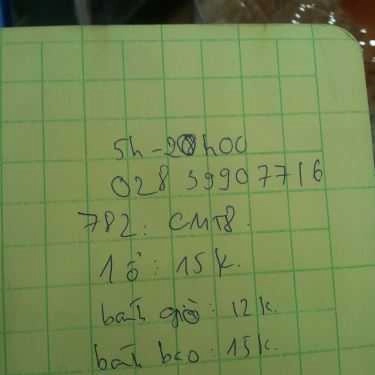 5h - 20h00
028 39907716
782: CMT8.
1 ổ: 15k.
bánh giò: 12k.
bánh bao: 15k.